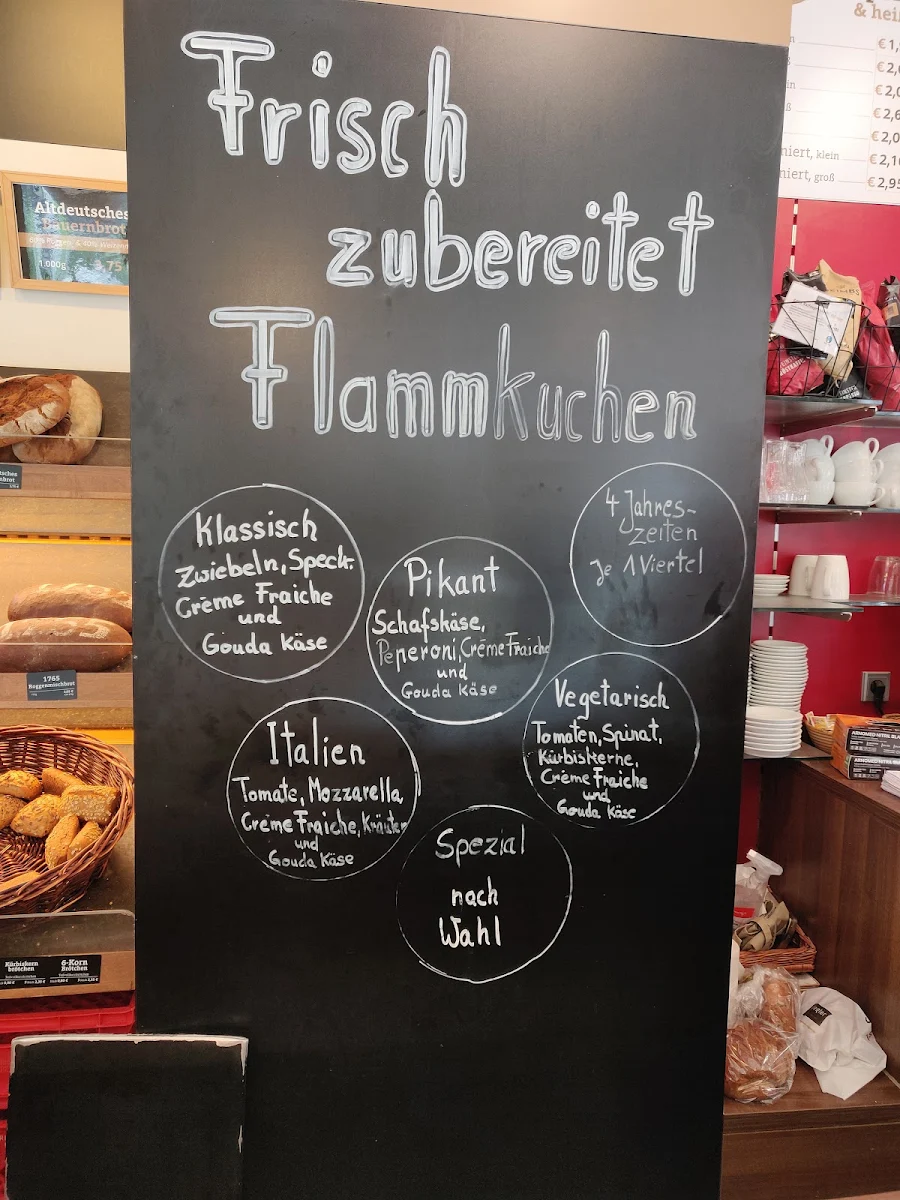 Frisch
zubereitet
Flammkuchen
Klassisch
Zwiebeln, Speck.
Crème Fraiche
und
Gouda Käse
Pikant
Schafskäse,
Peperoni, Crème Fraiche
und
Gouda Käse
4 Jahres-
zeiten
Je 1 Viertel
Italien
Tomate, Mozzarella,
Crème Fraiche, Kräuter
und
Gouda Käse
Vegetarisch
Tomaten, Spinat,
Kürbiskerne,
Crème Fraiche
und
Gouda Käse
Spezial
nach
Wahl
Altdeutsches
Bauernbrot
1.000g
1765
Roggenmischbrot
Kürbiskern
brötchen
6-Korn
Brötchen
& hei
niert, klein
€2,10
niert, groß
€2,95